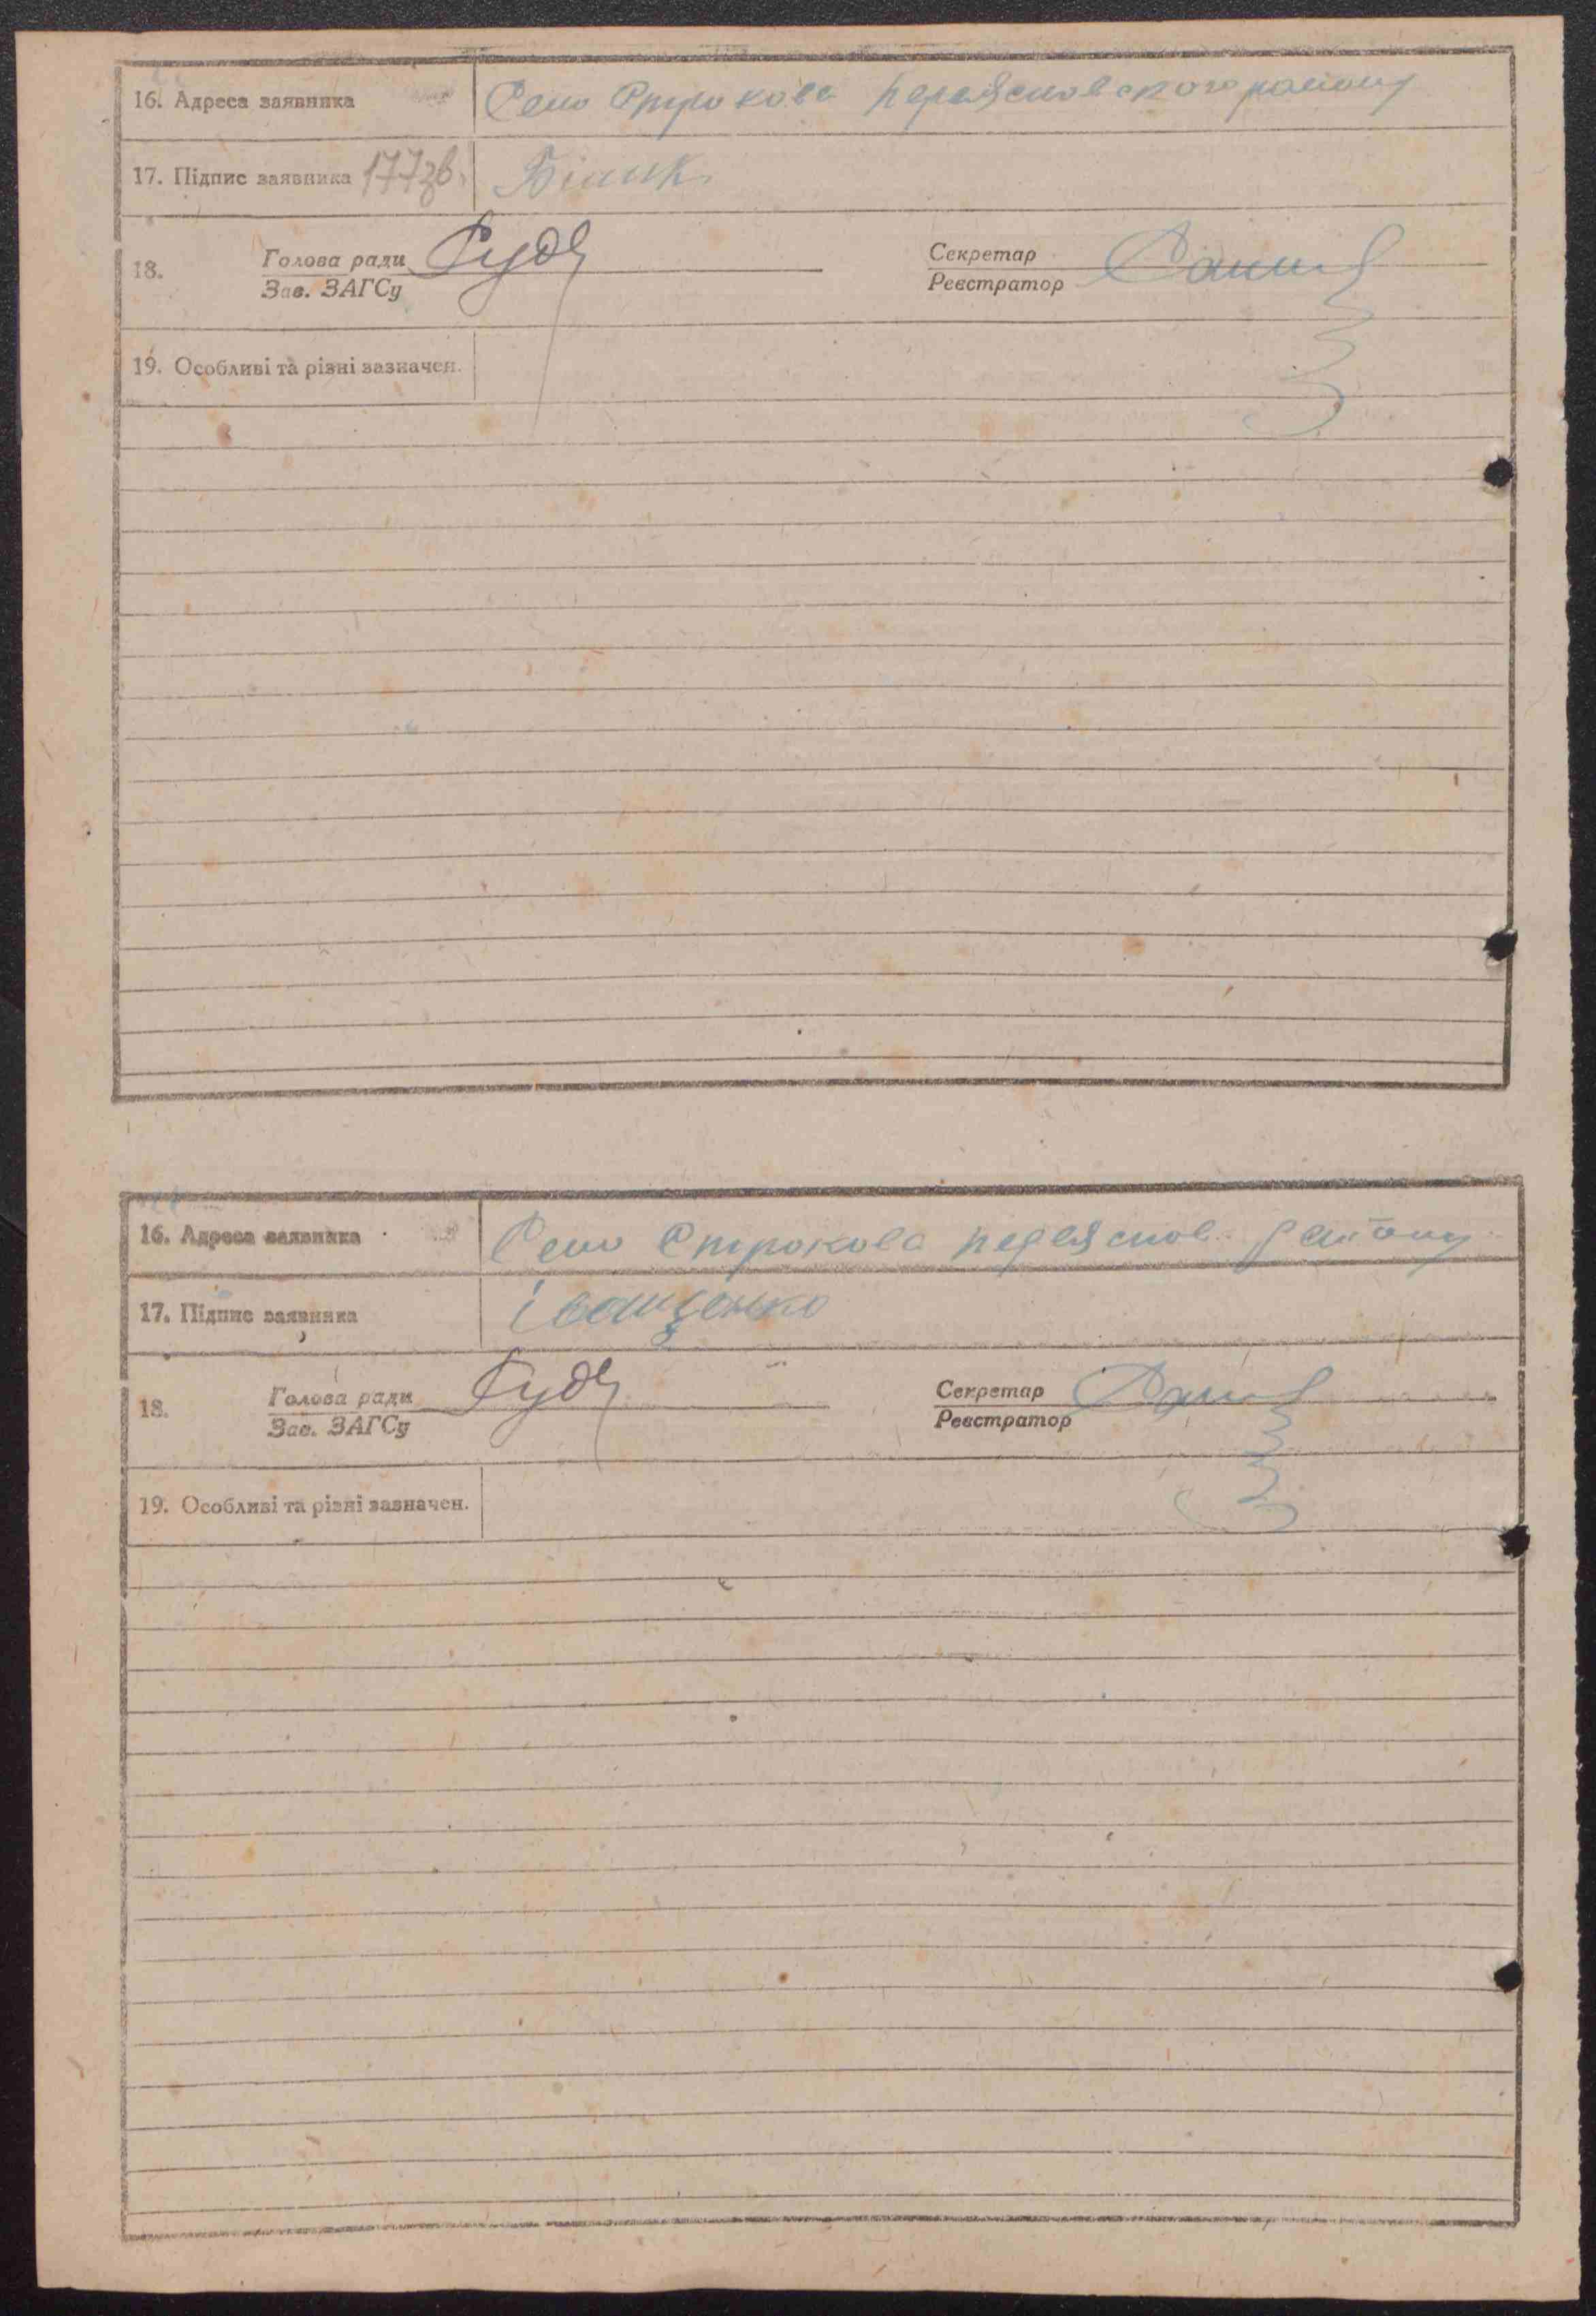 16. Адреса заявника Село Строкова переясловского району
17. Підпис заявника 177зв. Білик
18. Голова ради Руда Секретар
Зав. ЗАГСу Реєстратор
19. Особливі та різні зазначен.
16. Адреса заявника Село Строкова переяслов. району
17. Підпис заявника Іващенко
18. Голова ради Руда Секретар
Зав. ЗАГСу Реєстратор
19. Особливі та різні зазначен.